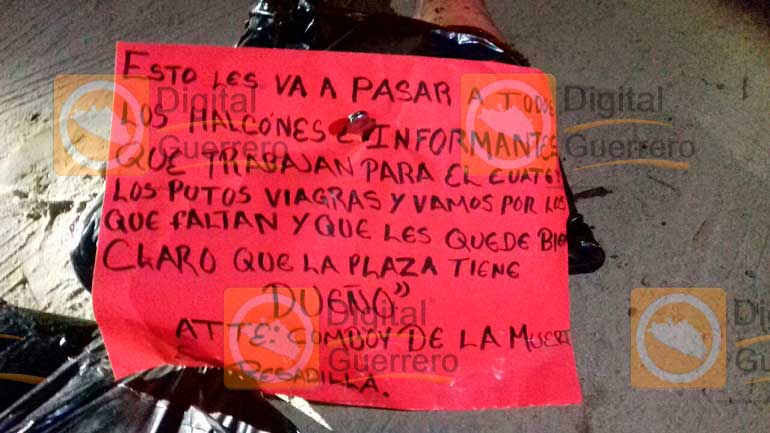 ESTO LES VA A PASAR A TODOS
LOS HALCONES E INFORMANTES
QUE TRABAJAN PARA EL CUATE Y
LOS PUTOS VIAGRAS Y VAMOS POR LOS
QUE FALTAN Y QUE LES QUEDE BIEN
CLARO QUE LA PLAZA TIENE
DUEÑO"
ATTE: COMBOY DE LA MUERT
PESADILLA.
Digital
Guerrero
Digital
Guerrero
Digital
Guerrero
Di
Gu